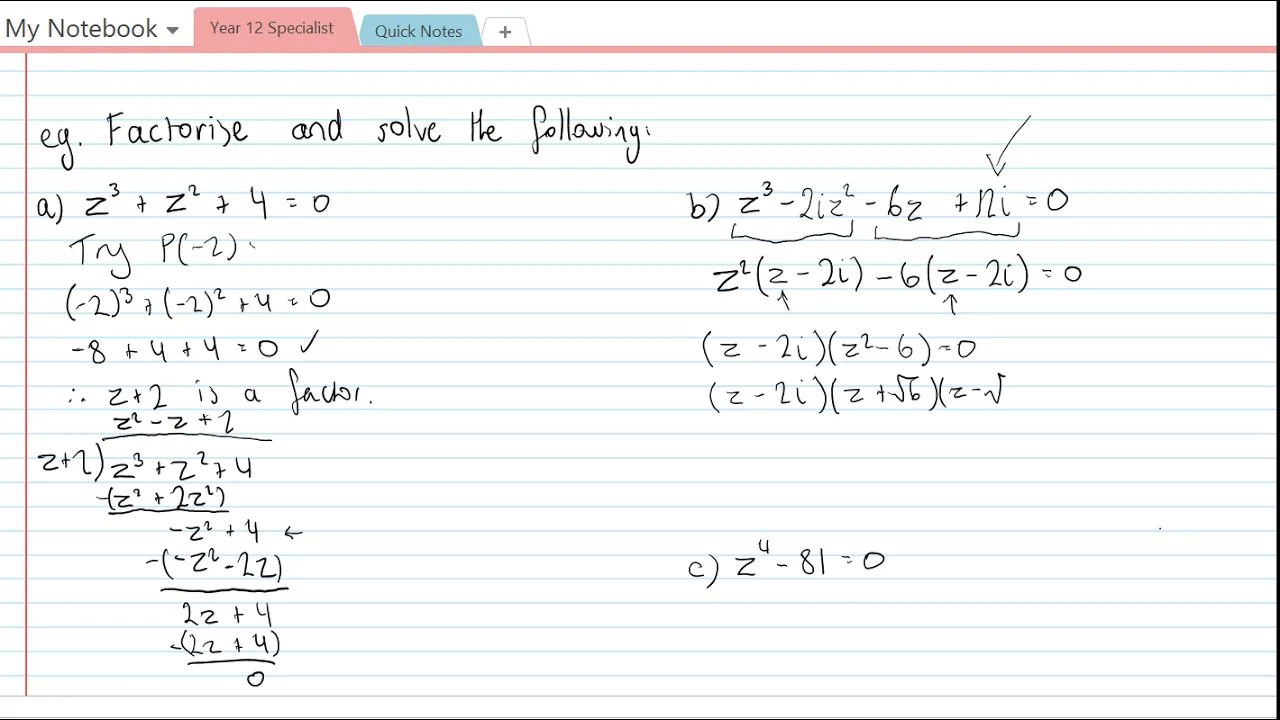 My Notebook
Year 12 Specialist
Quick Notes
+
eg. Factorise and solve the following:
a) z³ + z² + 4 = 0
Try P(-2)
(-2)³ + (-2)² + 4 = 0
-8 + 4 + 4 = 0 ✓
∴ z+2 is a factor.
z² - z + 2
z+2) z³ + z² + 4
-(z³ + 2z²)
-z² + 4 ←
-(-z² - 2z)
2z + 4
-(2z + 4)
0
b) z³ - 2iz² - 6z + 12i = 0
z²(z - 2i) - 6(z - 2i) = 0
(z - 2i)(z² - 6) = 0
(z - 2i)(z + √6)(z - √
c) z⁴ - 81 = 0